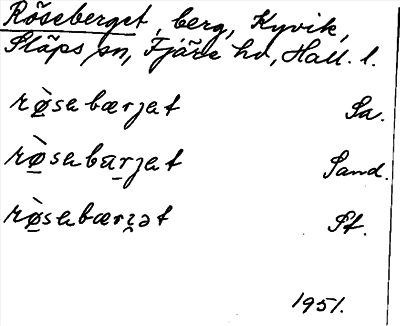 Röseberget, berg, Kyvik,
Släps sn, Fjäre hd, Hall. l.
rø̀̀sebærjat Sa.
rø̀sebærjet Sand.
rø̀sebærı̯ət St.
1951.